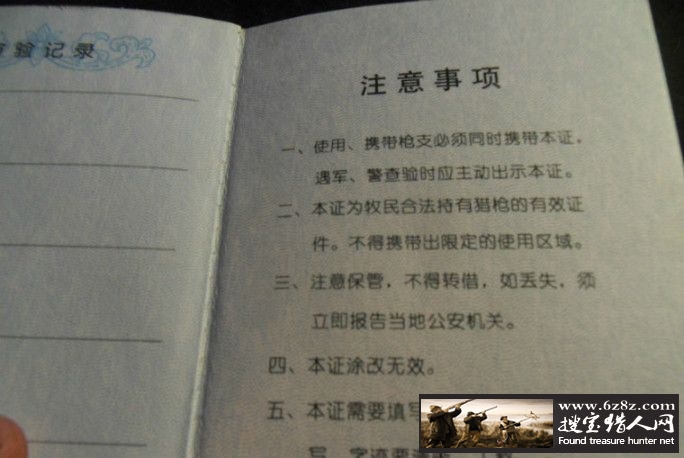 验记录
注意事项
一、使用、携带枪支必须同时携带本证，
遇军、警查验时应主动出示本证。
二、本证为牧民合法持有猎枪的有效证
件。不得携带出限定的使用区域。
三、注意保管，不得转借，如丢失，须
立即报告当地公安机关。
四、本证涂改无效。
五、本证需要填写
写，字迹要
www.6z8z.com
搜宝猎人网
Found treasure hunter net